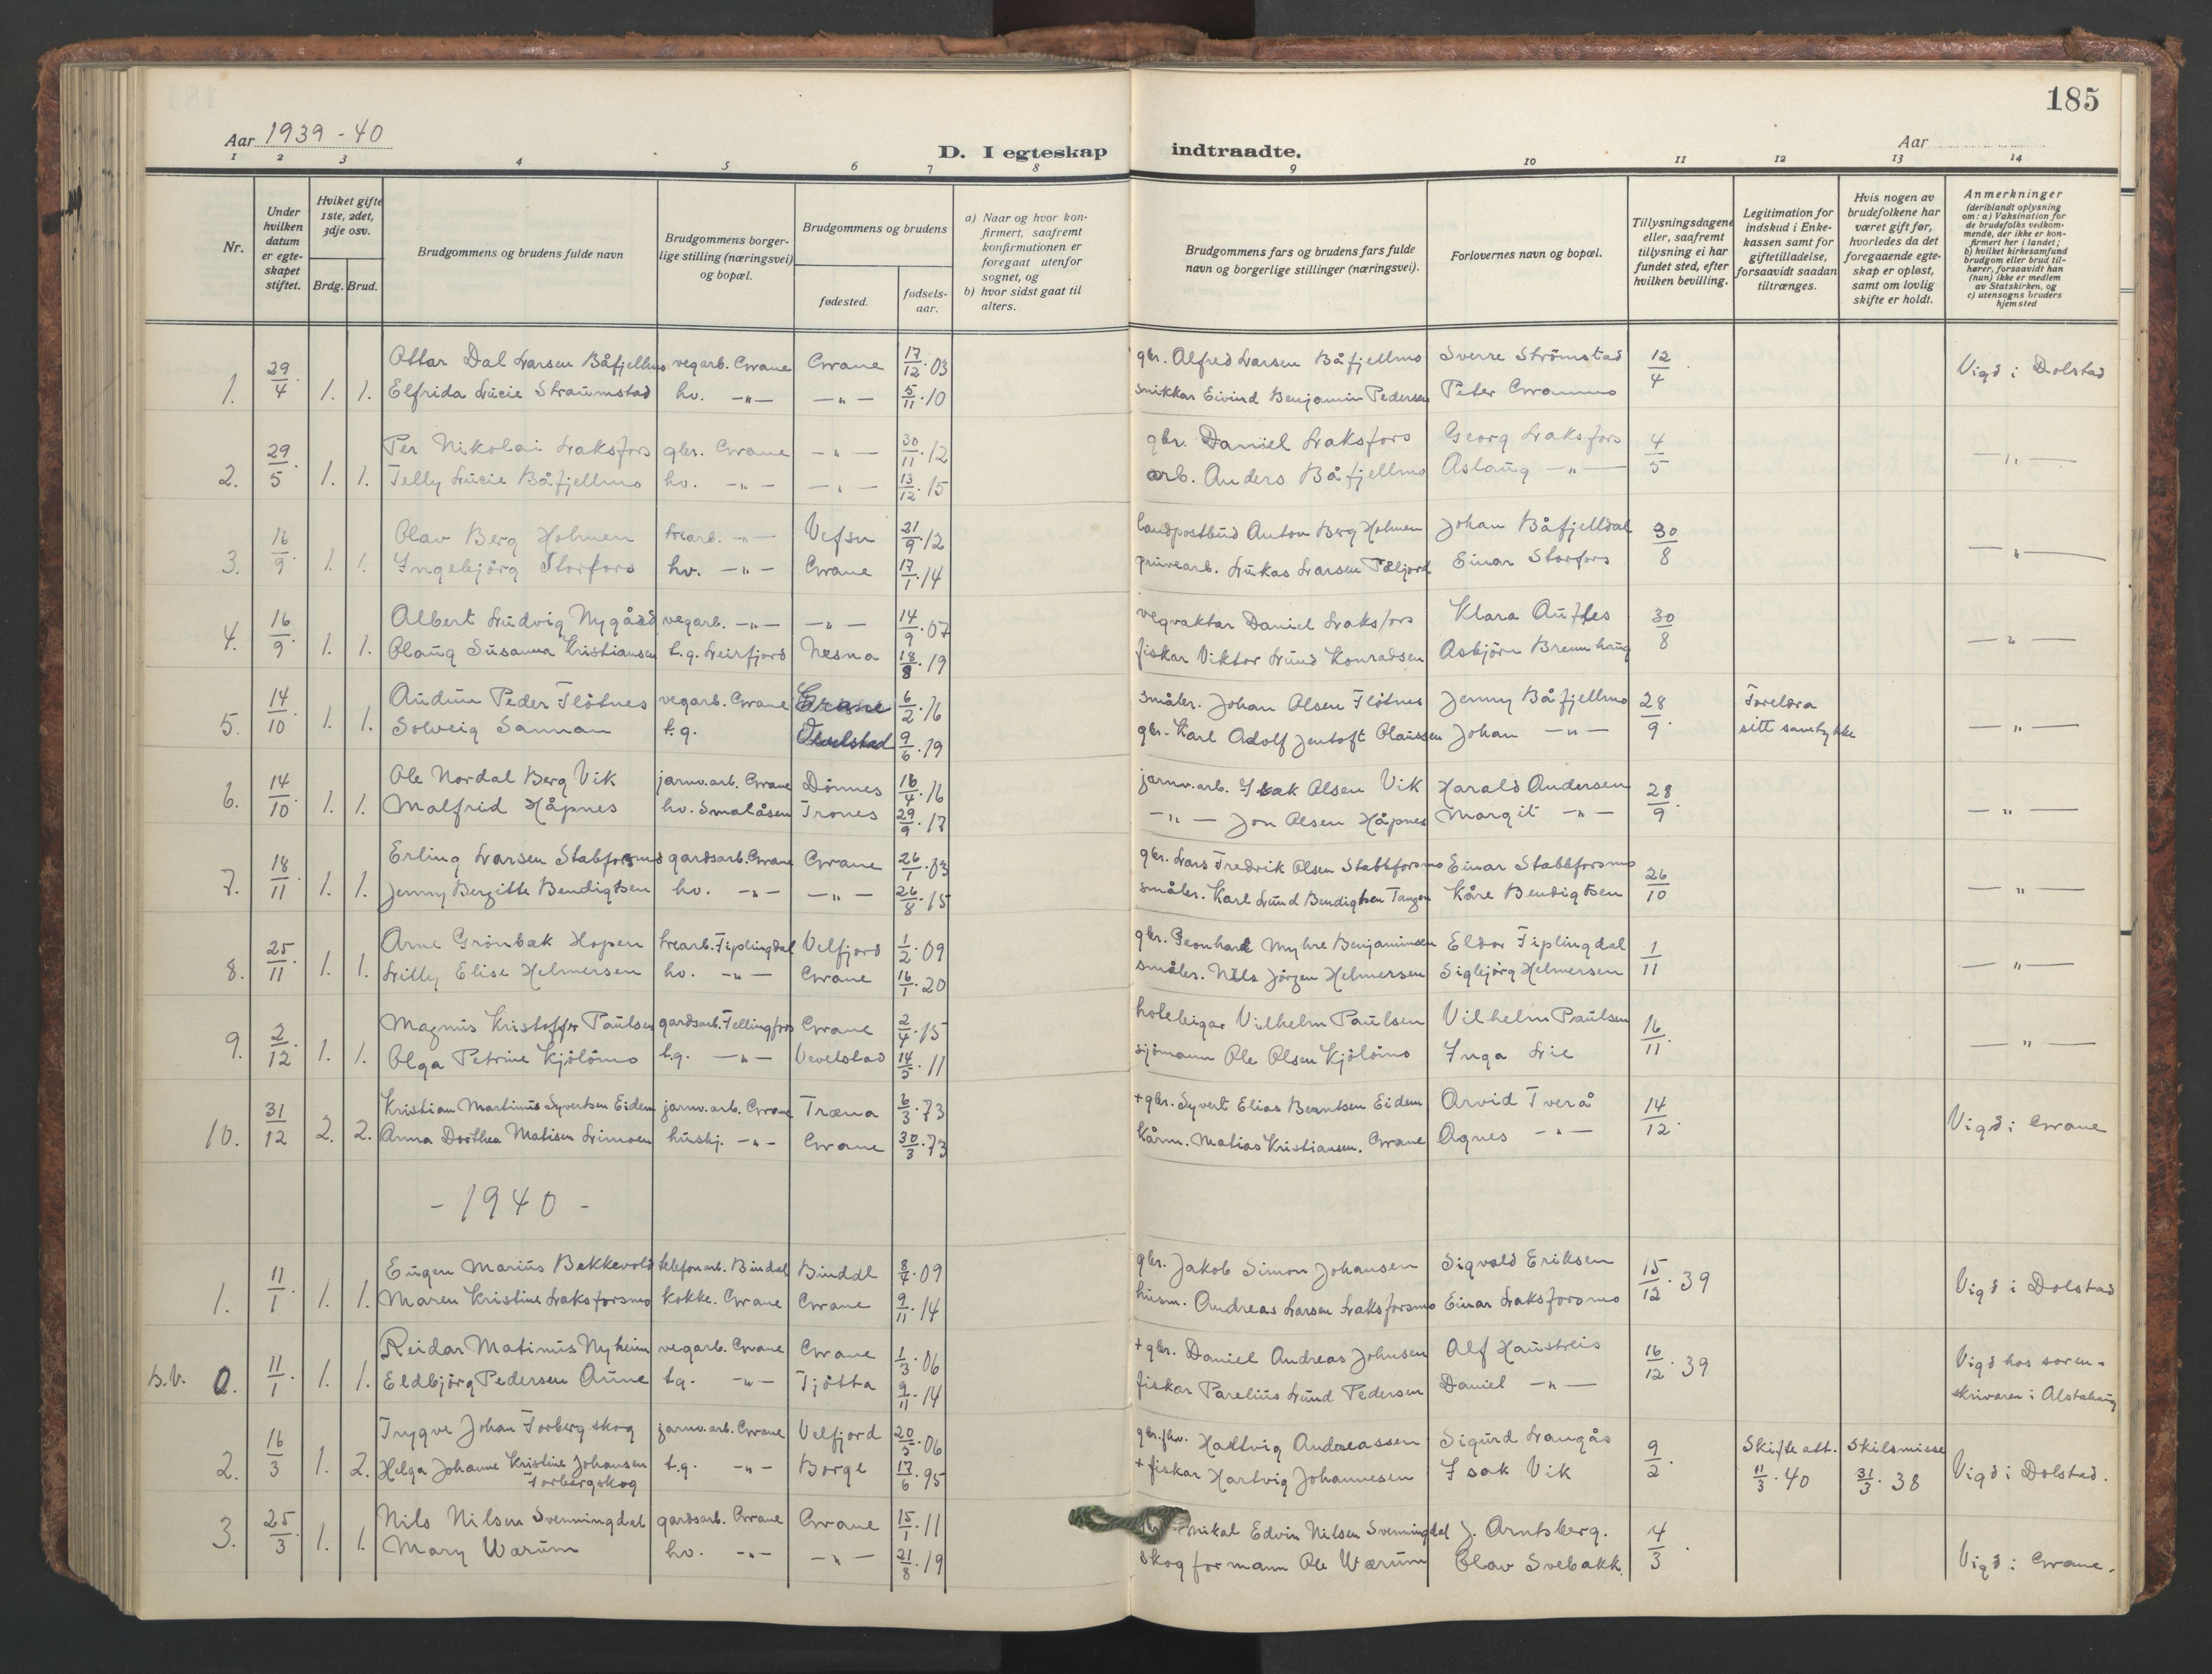 185
Aar 1939 - 40
D. I egteskap indtraadte.
Aar
1 2 3 4 5 6 7 8 9 10 11 12 13 14
Nr.
Under hvilken datum er egte-skapet stiftet.
Hviket gifte 1ste, 2det, 3dje osv.
Brdg. Brud.
Brudgommens og brudens fulde navn
Brudgommens borger-lige stilling (næringsvei) og bopæl.
Brudgommens og brudens
fødested.
fødsels-aar.
a) Naar og hvor kon-firmert, saafremt konfirmationen er foregaat utenfor sognet, og
b) hvor sidst gaat til alters.
Brudgommens fars og brudens fars fulde navn og borgerlige stillinger (næringsvei).
Forlovernes navn og bopæl.
Tillysningsdagene eller, saafremt tillysning ei har fundet sted, efter hvilken bevilling.
Legitimation for indskud i Enke-kassen samt for giftetilladelse, forsaavidt saadan tiltrænges.
Hvis nogen av brudefolkene har været gift før, hvorledes da det foregaaende egte-skap er opløst, samt om lovlig skifte er holdt.
Anmerkninger (deriblandt oplysning om: a) Vaksination for de brudefolks vedkom-mende, der ikke er kon-firmert her i landet; b) hvilket kirkesamfund brudgom eller brud til-hører, forsaavidt han (hun) ikke er medlem av Statskirken, og c) utensogns bruders hjemsted
Ottar Dal Larsen Båfjellmo vegarb. Grane Grane 17/12.03 gbr. Alfred Larsen Båfjellmo Sverre Strömstad 12/4 Vigd i Dolstad
1. 29/4 1. 1. Elfrida Lucie Straumstad hv. -"- -"- 5/11.10 snikkar Eivind Benjamin Pedersen Peter Granmo
Per Nikolai Laksfors gbr. Grane -"- 30/11.12 gbr. Daniel Laksfors Georg Laksfors 4/5 -"-
2. 29/5 1. 1. Telly Lucie Båfjellmo hv. -"- -"- 13/12.15 arb. Anders Båfjellmo Aslaug -"-
Olav Berg Holmen trearb. -"- Vefsn 21/9.12 landpostbud Anton Berg Holmen Johan Båfjelldal 30/8 -"-
3. 16/9 1. 1. Ingebjörg Storfors hv. -"- Grane 17/1.14 gruvearb. Lukas Larsen Einar Storfors
Albert Ludvig Nygård vegarb. -"- -"- 14/9.07 vegvaktar Daniel Laksfors Klara 30/8 -"-
4. 16/9 1. 1. Olaug Susanna Kristiansen t.g. Leirfjord Nesna 18/8.19 fiskar Viktor Lund Konradsen Asbjörn Brennhaug
Audun Peder Flötnes vegarb. Grane Grane 6/2.16 småbr. Johan Olsen Flötnes Jenny Båfjellmo 28/9 Foreldra sitt samtykke -"-
5. 14/10 1. 1. Solveig Sannan t.g. 9/6.19 gbr. Karl Adolf Jentoft Olaussen Johan -"-
Ole Nordal Berg Vik jarnv.arb. Grane Dönnes 16/4.16 jarnv.arb. Isak Olsen Vik Harald Andersen 28/9 -"-
6. 14/10 1. 1. Malfrid Håpnes hv. Smalåsen Trones 29/9.17 -"- Jon Olsen Håpnes Margit -"-
Erling Larsen Stabforsmo gardsarb. Grane Grane 26/1.03 gbr. Lars Fredrik Olsen Stabbforsmo Einar Stabbforsmo 26/10 -"-
7. 18/11 1. 1. Jenny Bergitte Bendigtsen hv. -"- -"- 26/8.15 småbr. Karl Lund Bendigtsen Tangen Kåre Bendigtsen
Arne Grönbak Hopen trearb. Fiplingdal Velfjord 1/2.09 gbr. Leonhard Myhre Benjaminsen Eldor Fiplingdal 1/11 -"-
8. 25/11 1. 1. Lilly Elise Helmersen hv. -"- Grane 16/1.20 småbr. Nils Jörgen Helmersen Sigbjörg Helmersen
Magnus Kristoffer Paulsen gardsarb. Fellingfors Grane 2/4.15 holeleigar Vilhelm Paulsen Vilhelm Paulsen 16/11 -"-
9. 2/12 1. 1. Olga Petrine Kjölömo t.g. -"- Vevelstad 14/5.11 sjömann Ole Olsen Kjölömo Inga Lie
Kristian Martinus Syvertsen Eidem jarnv.arb. Grane Træna 6/3.73 +gbr. Syvert Elias Berntsen Eidem Arvid Tverå 14/12 Vigd i Grane
10. 31/12 2. 2. Anna Dorthea Matisen Limoen hushj. -"- Grane 30/3.73 kårm. Matias Kristiansen. Grane Agnes -"-
- 1940 -
Eugen Marius Bekkevold telefonarb. Bindal Bindal 8/4.09 gbr. Jakob Simon Johansen Sigvald Eriksen 15/12.39 Vigd i Dolstad
1. 11/1 1. 1. Maren Kristine Laksforsmo kokke. Grane Grane 9/11.14 husm. Andreas Larsen Laksforsmo Einar Laksforsmo
Reidar Matinus Nyheim vegarb. Grane Grane 1/3.06 +gbr. Daniel Andreas Johnsen Alf Haustreis 16/12.39 Vigd hos soren-
b.v. 0. 11/1 1. 1. Eldbjörg Pedersen Aune t.g. -"- Tjötta 9/11.14 fiskar Parelius Lund Pedersen Daniel -"- skrivaren i Alstahaug
Trygve Johan Forbergskog jarnv.arb. Grane Velfjord 20/5.06 gbr. fhv. Hartvig Andreassen Sigurd Langås 9/2 Skifte att. 11/3.40 Skilsmisse 31/3.38 Vigd i Dolstad.
2. 16/3 1. 2. Helga Johanne Kristine Johansen t.g. -"- Borge 17/6.95 +fiskar Hartvig Johannesen Isak Vik
Forbergskog
Nils Nilsen Svenningdal gardsarb. Grane Grane 15/1.11 Mikal Edvin Nilsen Svenningdal J. Arntsberg. 4/3 Vigd i Grane.
3. 25/3 1. 1. Mary Wærum hv. -"- -"- 21/8.19 Skogformann Ole Wærum Olav Svebakk.